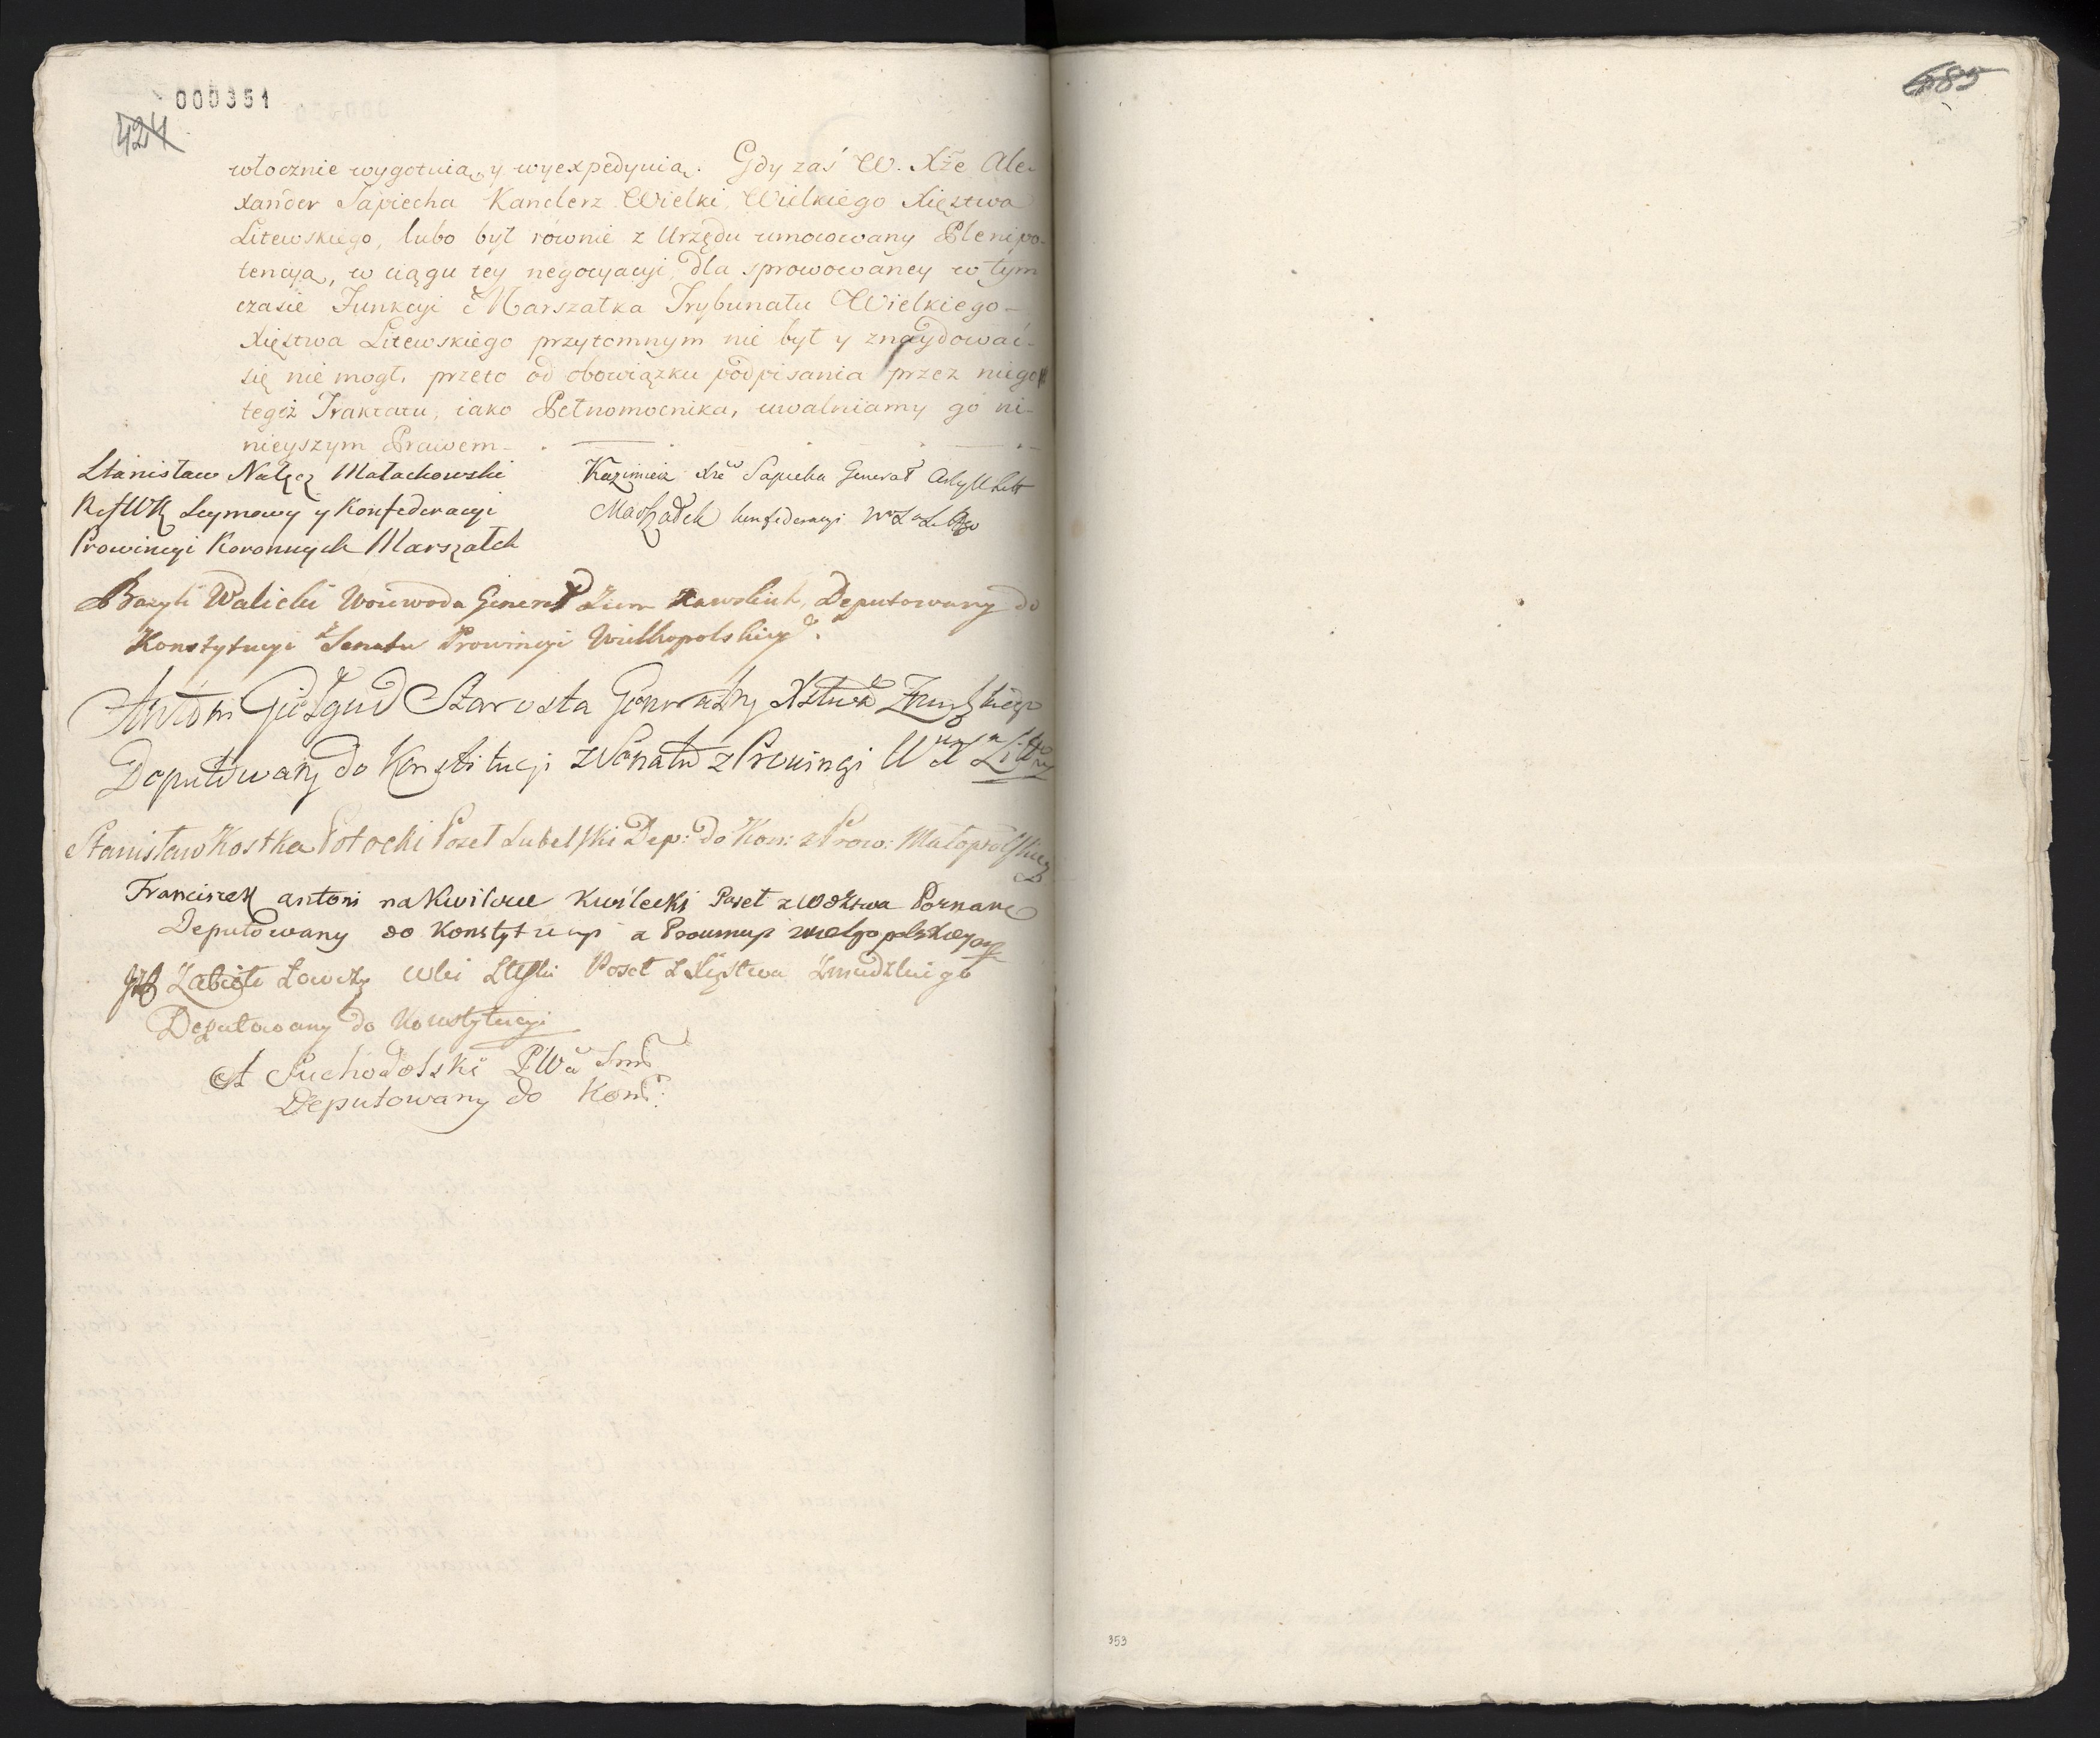 000351
424
włocznie wygotuią, y wyexpedyuią. Gdy zaś W. Xże Ale-
xander Sapiecha Kanclerz Wielki Wielkiego Xięstwa
Litewskiego, lubo był rownie z Urzędu umocowany Plenipo-
tencyą, w ciągu tey negocyacyi, dla sprawowaney w tym
czasie Funkcyi Marszałka Trybunału Wielkiego
Xięstwa Litewskiego przytomnym nie był y znaydować
się nie mogł, przeto od obowiązku podpisania przez niego
tegoż Traktatu, iako Pełnomocnika, uwalniamy go ni-
nieyszym Prawem.
Stanisław Nałęcz Małachowski
RefWK Seymowy y Konfederacyi
Prowincyi Koronnych Marszałek
Kazimierz Sapieha Generał Arty Litt
Marszałek konfederacyi
Bazyli Walicki Woiewoda Generał Ziem Rawskich, Deputowany do
Konstytucyi z Senatu Prowincyi Wielkopolskiey.
Antoni Giełgud Starosta Generalny Xstwa Żmudzkiego
Deputowany do Konstitucji z Senatu z Prowincyi
Stanisław Kostka Potocki Poseł Lubelski Dep: do Kon: z Prow: Małopolskiey
Franciszek antoni na Kwilczu Kwilecki Poseł z Wdztwa Poznans
Deputowany do Konstytucyi
Zabiełło Łowczy Poseł z Xięstwa Zmudzkiego
Deputowany do Konstytucyi
A Suchodolski
Deputowany do Kons:
685
353